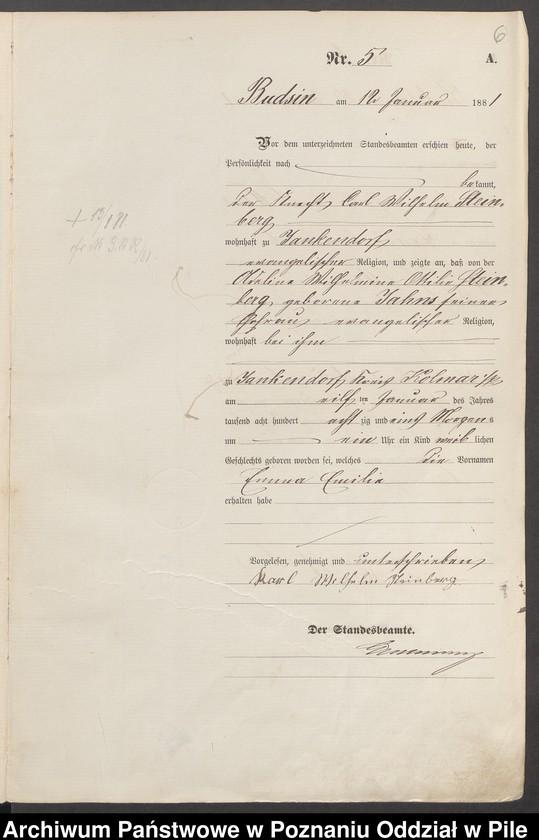 6
Nr. 5 A.
Budsin am 12 Januar 1881
Vor dem unterzeichneten Standesbeamten erschien heute, der
Persönlichkeit nach
bekannt,
der Knecht Carl Wilhelm Stein-
berg
wohnhaft zu Jankendorf
evangelischer Religion, und zeigte an, daß von der
Adeline Wilhelmine Ottilie Stein-
berg, geborene Jahns seiner
Ehefrau, evangelischer Religion,
wohnhaft bei ihm
zu Jankendorf, Kreis Kolmar i/P
am eilften Januar des Jahres
tausend acht hundert achtzig und eins Morgens
um ein Uhr ein Kind weiblichen
Geschlechts geboren worden sei, welches die Vornamen
Emma Emilie
erhalten habe
Vorgelesen, genehmigt und unterschrieben
Karl Wilhelm Steinberg
Der Standesbeamte.
Archiwum Państwowe w Poznaniu Oddział w Pile